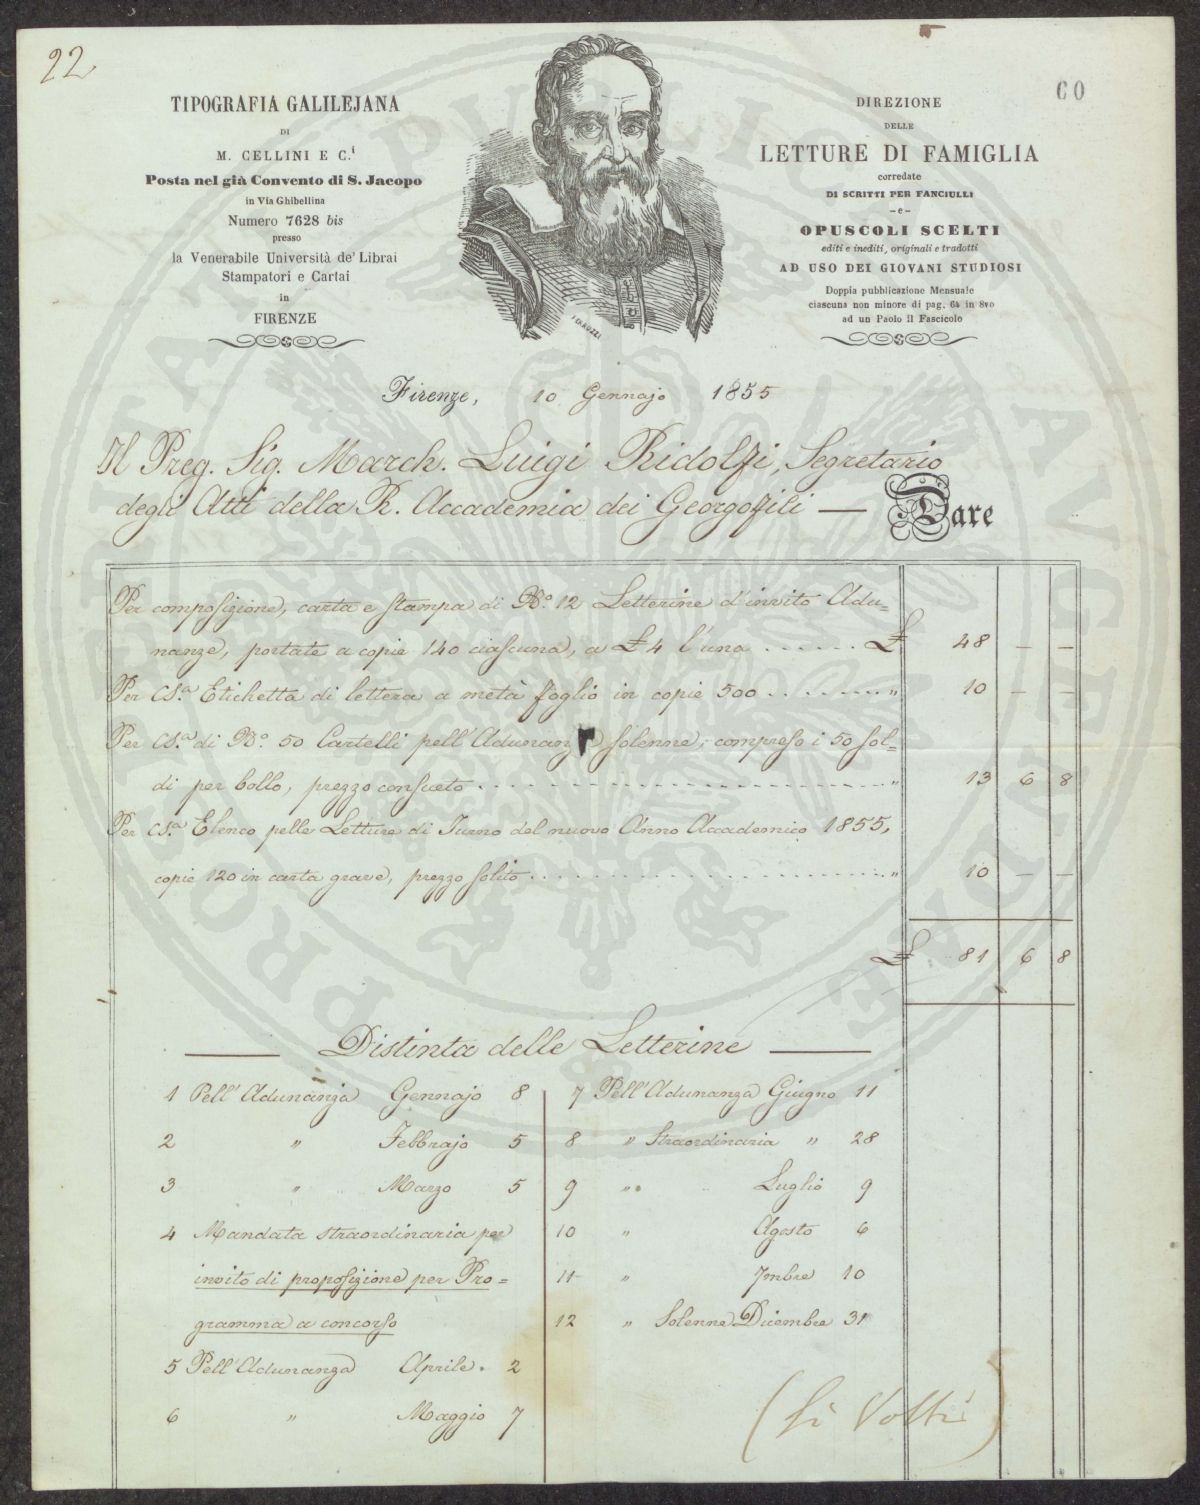 22
60
TIPOGRAFIA GALILEJANA
DI
M. CELLINI E C.i
Posta nel già Convento di S. Jacopo
in Via Ghibellina
Numero 7628 bis
presso
la Venerabile Università de' Librai
Stampatori e Cartai
in
FIRENZE
DIREZIONE
DELLE
LETTURE DI FAMIGLIA
corredate
DI SCRITTI PER FANCIULLI
- e -
OPUSCOLI SCELTI
editi e inediti, originali e tradotti
AD USO DEI GIOVANI STUDIOSI
Doppia pubblicazione Mensuale
ciascuna non minore di pag. 64 in 8vo
ad un Paolo il Fascicolo
Firenze, 10 Gennajo 1855
Il Preg. Sig. March. Luigi Ridolfi, Segretario
degli Atti della R. Accademia dei Georgofili — Dare
Per composizione, carta e stampa di No. 12 Letterine d'invito Adu=
nanze, portate a copie 140 ciascuna, a £ 4 l'una . . . . . . £ 48 — —
Per Cs.a Etichetta di lettera a metà foglio in copie 500 . . . . . . . . " 10 — —
Per Cs.a di No. 50 Cartelli pell'Adunanza solenne, compreso i 50 sol=
di per bollo, prezzo consueto . . . . . . . . " 13 6 8
Per Cs.a Elenco pelle Letture di Turno del nuovo Anno Accademico 1855,
copie 120 in carta grave, prezzo solito . . . . . . . . " 10 — —
£ 81 6 8
Distinta delle Letterine
1 Pell'Adunanza Gennajo 8
2 " Febbrajo 5
3 " Marzo 5
4 Mandata straordinaria per
invito di proposizione per Pro=
gramma a concorso
5 Pell'Adunanza Aprile. 2
6 " Maggio 7
7 Pell'Adunanza Giugno 11
8 " Straordinaria " 28
9 " Luglio 9
10 " Agosto 6
11 " 7mbre 10
12 " Solenne Dicembre 31
(Si Volti)
PROSPERITATI PUBLICAE AUGENDAE